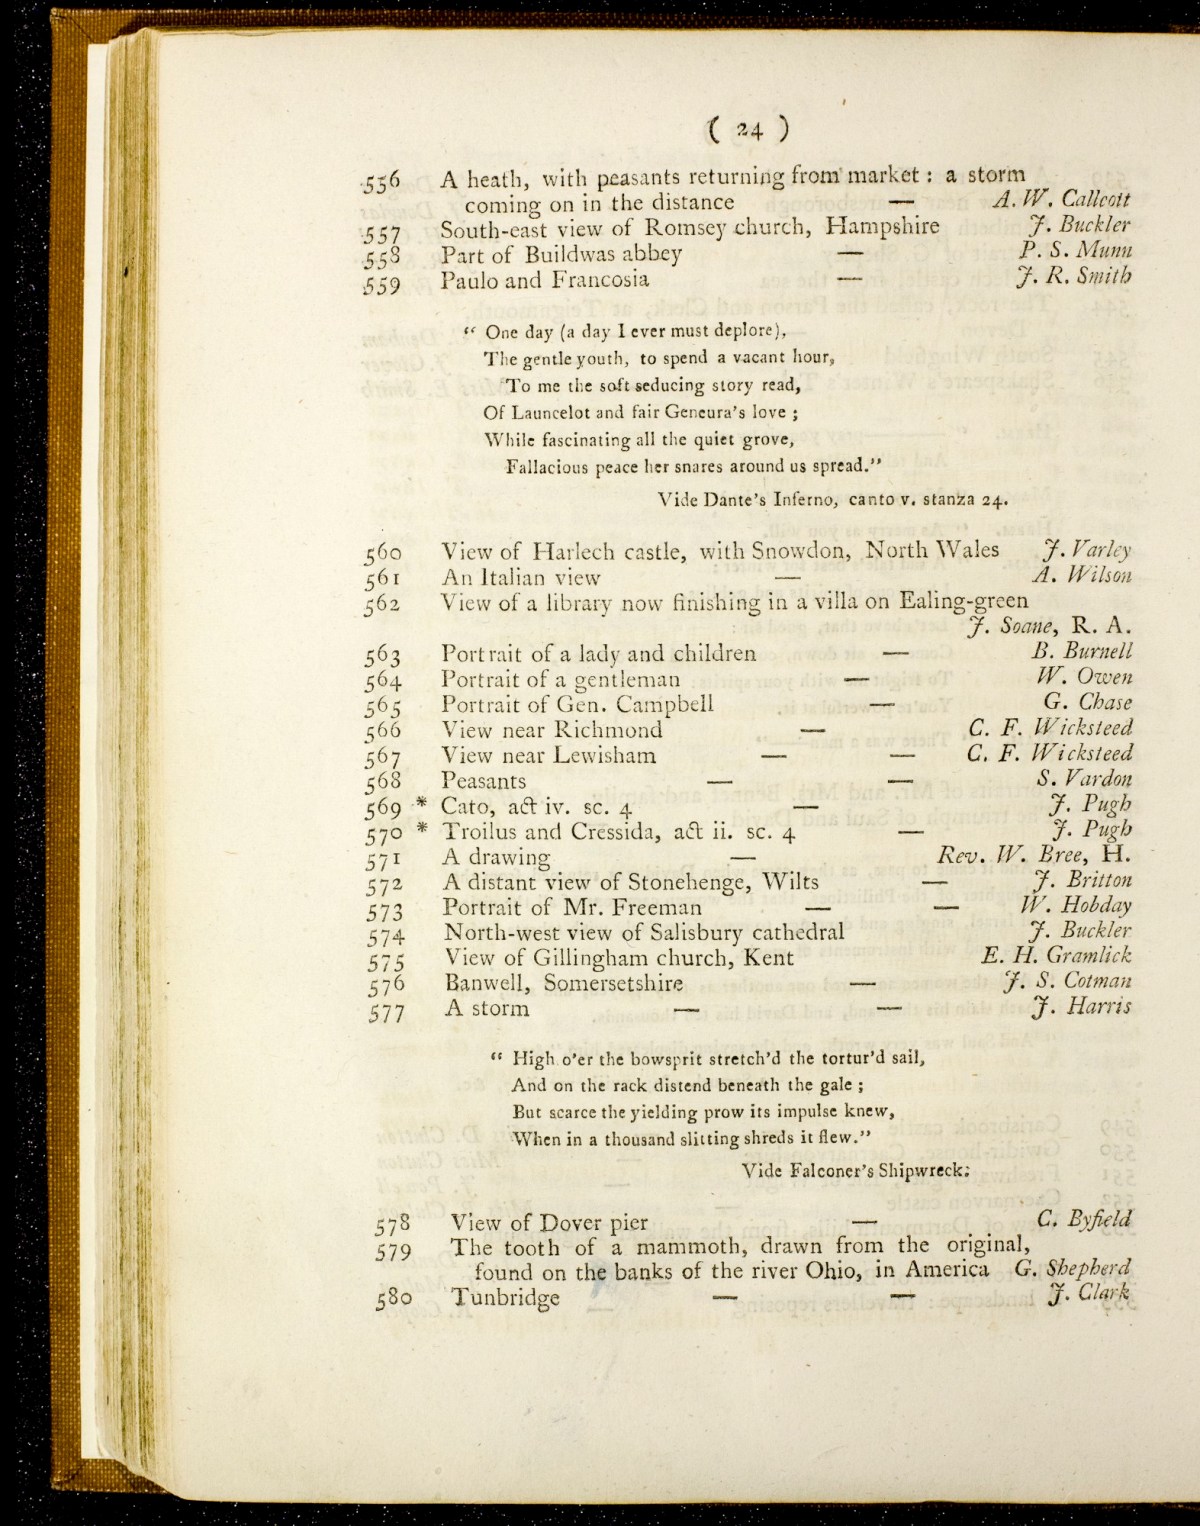 ( 24 )
556 A heath, with peasants returning from market : a storm
coming on in the distance — A. W. Callcott
557 South-east view of Romsey church, Hampshire J. Buckler
558 Part of Buildwas abbey — P. S. Munn
559 Paulo and Francosia — J. R. Smith
“ One day (a day I ever must deplore),
The gentle youth, to spend a vacant hour,
To me the soft seducing story read,
Of Launcelot and fair Geneura's love ;
While fascinating all the quiet grove,
Fallacious peace her snares around us spread.”
Vide Dante's Inferno, canto v. stanza 24.
560 View of Harlech castle, with Snowdon, North Wales J. Varley
561 An Italian view — A. Wilson
562 View of a library now finishing in a villa on Ealing-green
J. Soane, R. A.
563 Portrait of a lady and children — B. Burnell
564 Portrait of a gentleman — W. Owen
565 Portrait of Gen. Campbell — G. Chase
566 View near Richmond — C. F. Wicksteed
567 View near Lewisham — — C. F. Wicksteed
568 Peasants — — S. Vardon
569 * Cato, act iv. sc. 4 — J. Pugh
570 * Troilus and Cressida, act ii. sc. 4 — J. Pugh
571 A drawing — Rev. W. Bree, H.
572 A distant view of Stonehenge, Wilts — J. Britton
573 Portrait of Mr. Freeman — — W. Hobday
574 North-west view of Salisbury cathedral J. Buckler
575 View of Gillingham church, Kent E. H. Gramlick
576 Banwell, Somersetshire — J. S. Cotman
577 A storm — — J. Harris
“ High o'er the bowsprit stretch'd the tortur'd sail,
And on the rack distend beneath the gale ;
But scarce the yielding prow its impulse knew,
When in a thousand slitting shreds it flew.”
Vide Falconer's Shipwreck.
578 View of Dover pier — C. Byfield
579 The tooth of a mammoth, drawn from the original,
found on the banks of the river Ohio, in America G. Shepherd
580 Tunbridge — — J. Clark